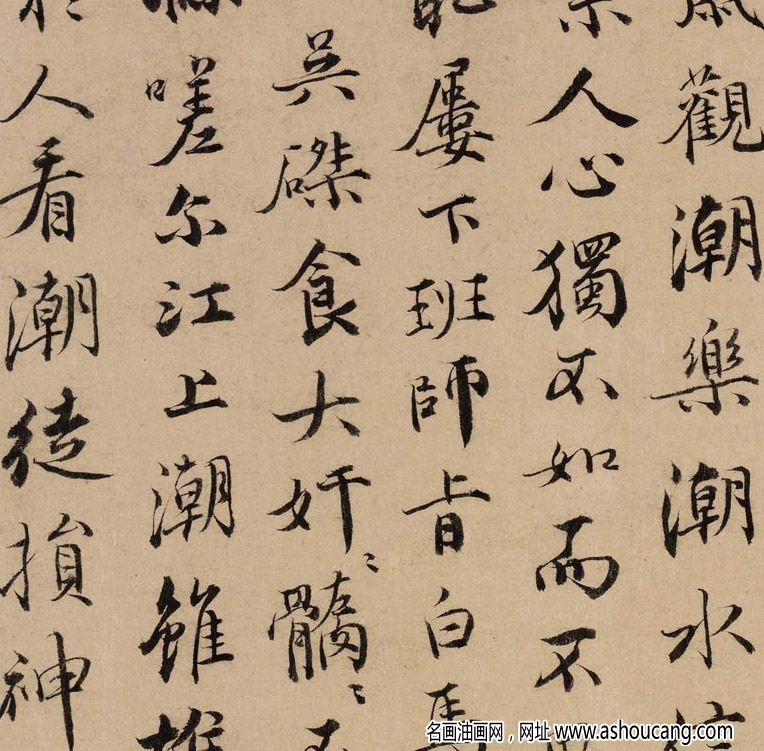 觀潮樂潮水
人心獨不如而不
屢下班師旨白馬
吴磔食大奸〻髒〻不
嗟尔江上潮雖堆
人看潮徒損神
名画油画网，网址 www.ashoucang.com